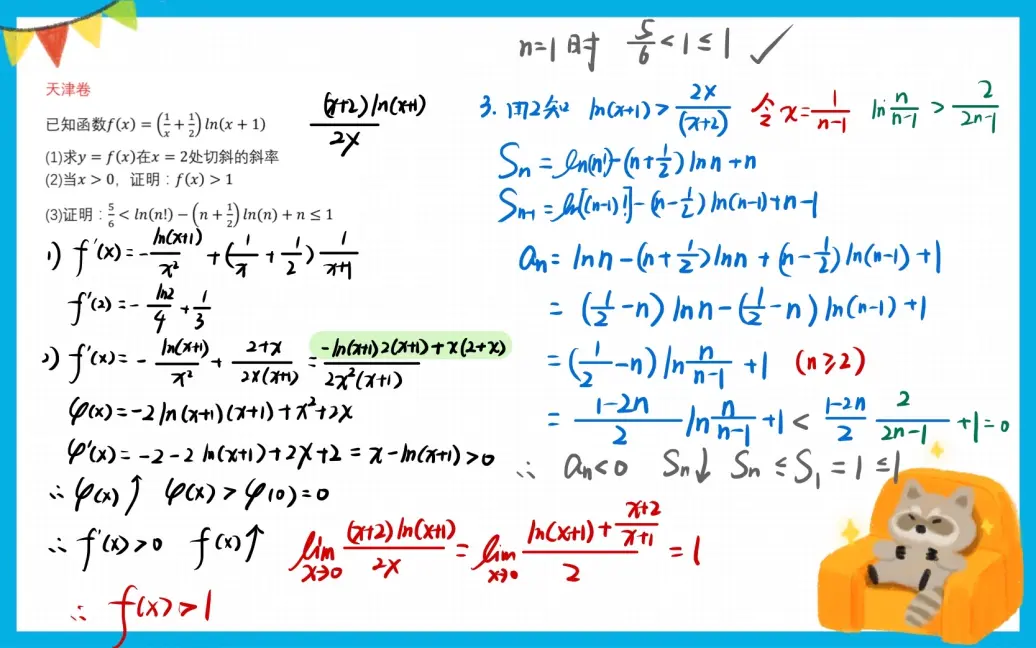 天津卷
已知函数f(x) = (1/x + 1/2) ln(x + 1)
(1)求y = f(x)在x = 2处切斜的斜率
(2)当x > 0，证明：f(x) > 1
(3)证明：5/6 < ln(n!) − (n + 1/2) ln(n) + n ≤ 1
(x+2)ln(x+1)/2x
1) f'(x) = -ln(x+1)/x² + (1/x + 1/2) 1/(x+1)
f'(2) = -ln2/4 + 1/3
2) f'(x) = -ln(x+1)/x² + (2+x)/(2x(x+1)) = (-ln(x+1)2(x+1)+x(2+x))/(2x²(x+1))
φ(x) = -2ln(x+1)(x+1)+x²+2x
φ'(x) = -2-2ln(x+1)+2x+2 = x-ln(x+1)>0
∴ φ(x)↑ φ(x)>φ(0)=0
∴ f'(x)>0 f(x)↑
lim x→0 (x+2)ln(x+1)/2x = lim x→0 (ln(x+1)+(x+2)/(x+1))/2 = 1
∴ f(x)>1
n=1时 5/6<1≤1 ✓
3. 由2知 ln(x+1)>2x/(x+2) 令x=1/(n-1) ln n/(n-1) > 2/(2n-1)
Sn = ln(n!)-(n+1/2)lnn+n
Sn-1 = ln[(n-1)!]-(n-1/2)ln(n-1)+n-1
an = lnn-(n+1/2)lnn+(n-1/2)ln(n-1)+1
= (1/2-n)lnn-(1/2-n)ln(n-1)+1
= (1/2-n)ln n/(n-1) +1 (n≥2)
= (1-2n)/2 ln n/(n-1) +1 < (1-2n)/2 2/(2n-1) +1=0
∴ an<0 Sn↓ Sn≤S1=1≤1